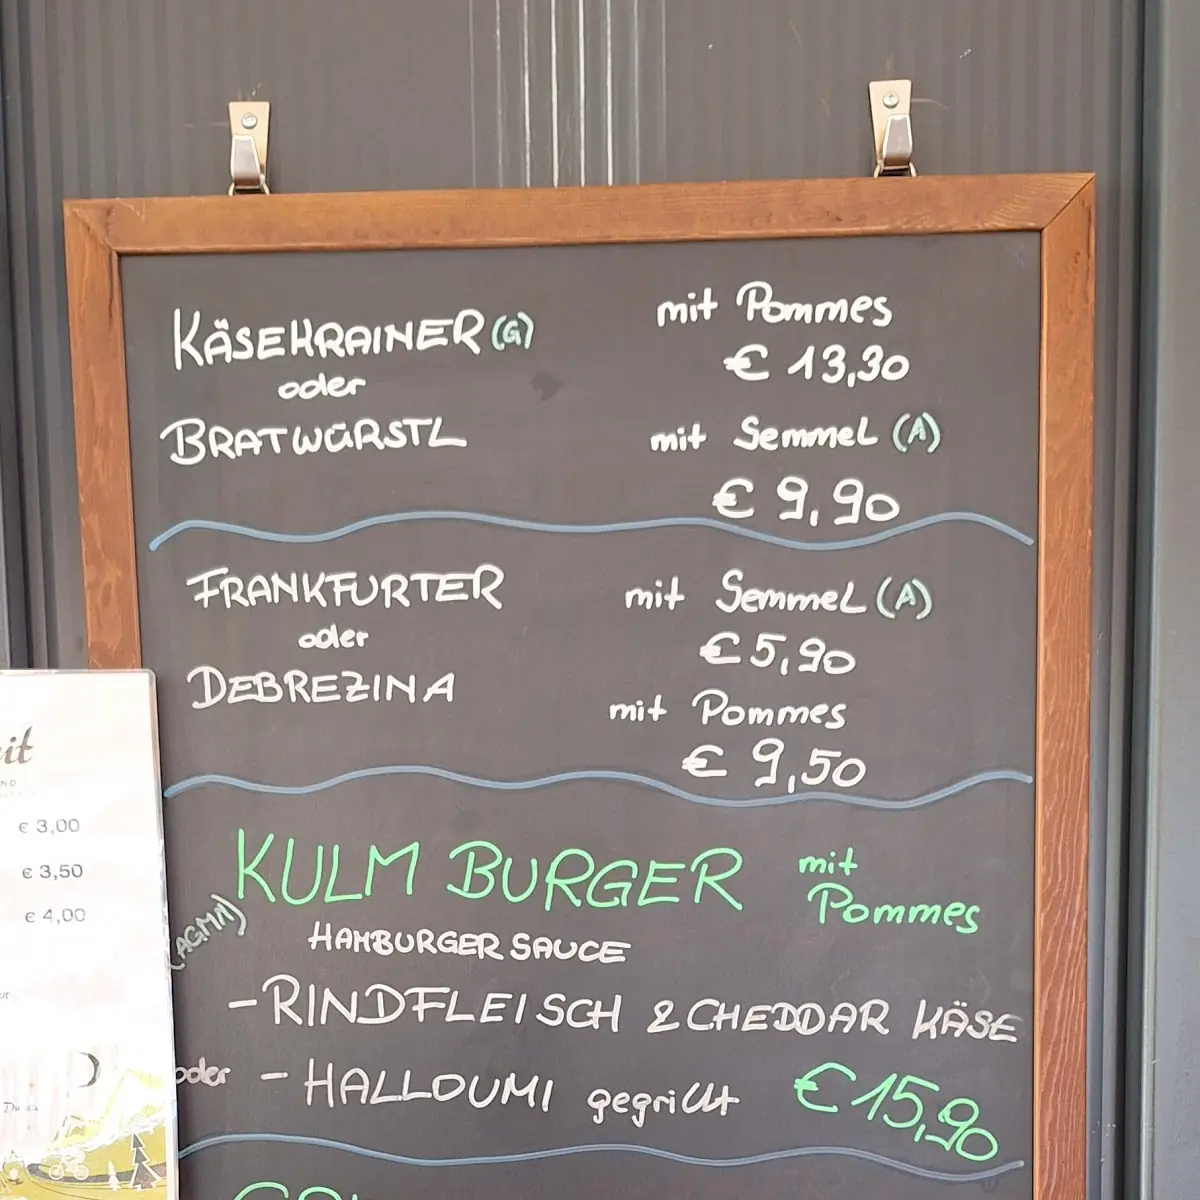 KÄSEKRAINER (G)
oder
BRATWÜRSTL
mit Pommes
€ 13,30
mit Semmel (A)
€ 9,90
FRANKFURTER
oder
DEBREZINA
mit Semmel (A)
€ 5,90
mit Pommes
€ 9,50
KULM BURGER mit
Pommes
(AGMN)
HAMBURGER SAUCE
- RINDFLEISCH & CHEDDAR KÄSE
oder - HALLOUMI gegrillt € 15,90
€ 3,00
€ 3,50
€ 4,00